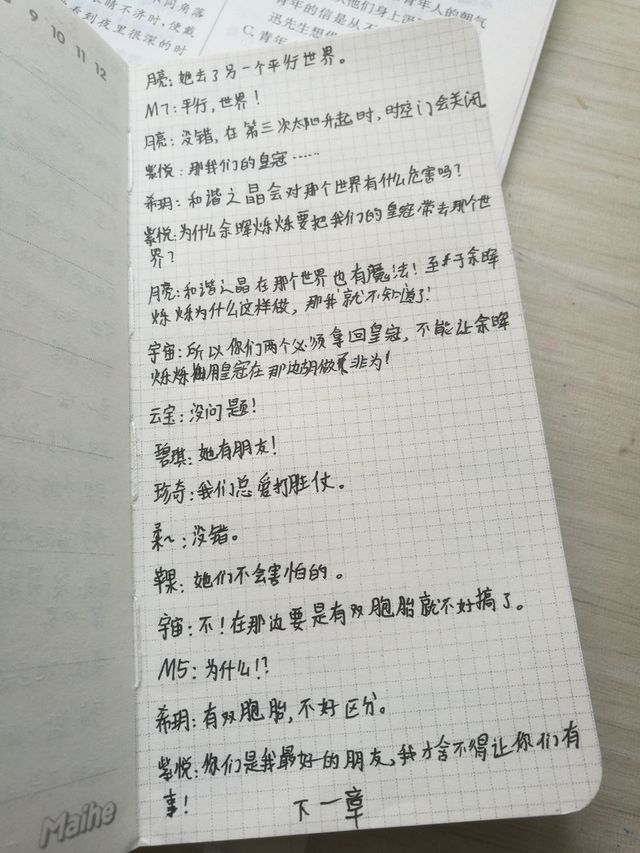 9 10 11 12
月亮:她去了另一个平行世界。
M7:平行,世界!
月亮:没错,在第三次太阳升起时,时空门会关闭
紫悦:那我们的皇冠……
希玥:和谐之晶会对那个世界有什么危害吗?
紫悦:为什么余晖烁烁要把我们的皇冠带去那个世
界?
月亮:和谐之晶在那个世界也有魔法!至于余晖
烁烁为什么这样做,那我就不知道了!
宇宙:所以你们两个必须拿回皇冠,不能让余晖
烁烁用皇冠在那边胡做非为!
云宝:没问题!
碧琪:她有朋友!
珍奇:我们总爱打胜仗。
柔~:没错。
苹果:她们不会害怕的。
宇宙:不!在那边要是有双胞胎就不好搞了。
M5:为什么!?
希玥:有双胞胎,不好区分。
紫悦:你们是我最好的朋友,我才舍不得让你们有
事!
下一章
Maihe